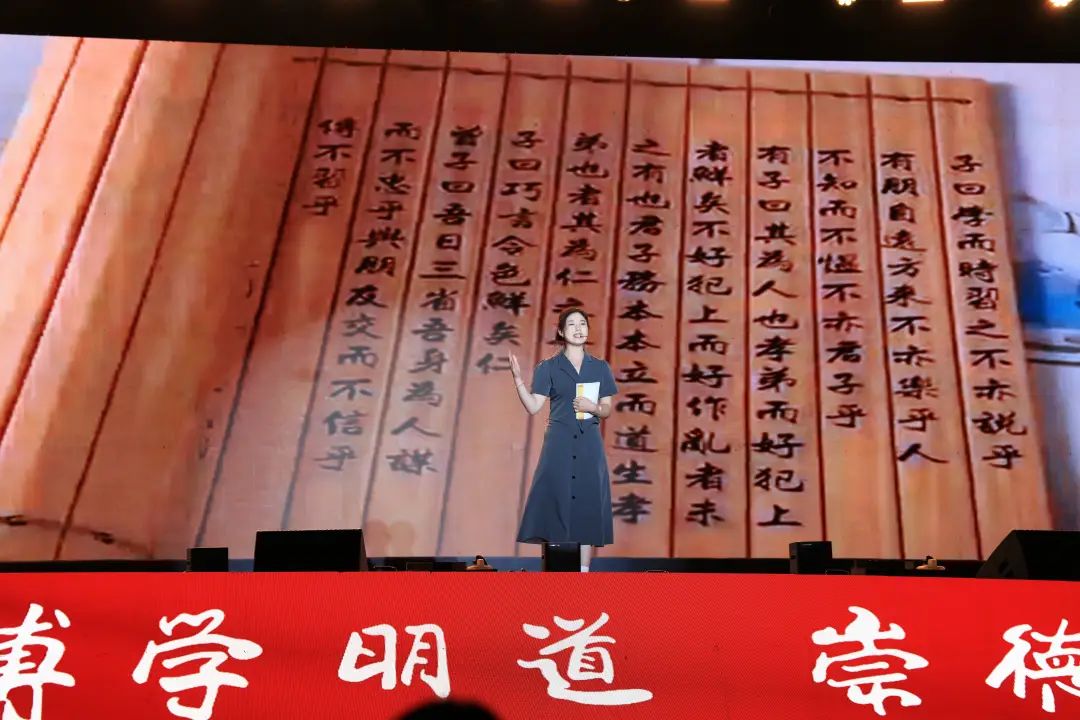 子曰學而時習之不亦説乎
有朋自遠方來不亦樂乎人
不知而不愠不亦君子乎
有子曰其為人也孝弟而好犯上
者鮮矣不好犯上而好作亂者未
之有也君子務本本立而道生孝
弟也者其為仁之
子曰巧言令色鮮矣仁
曾子曰吾日三省吾身為人謀
而不忠乎與朋友交而不信乎
傳不習乎
博学明道 崇德